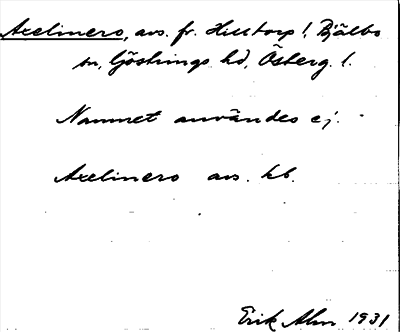 Axelinero, avs. fr. Hilltorp!, Bjälbo
sn, Göstrings hd, Österg. l.
Namnet användes ej.
Axelinero avs. kb.
Erik Alm 1931